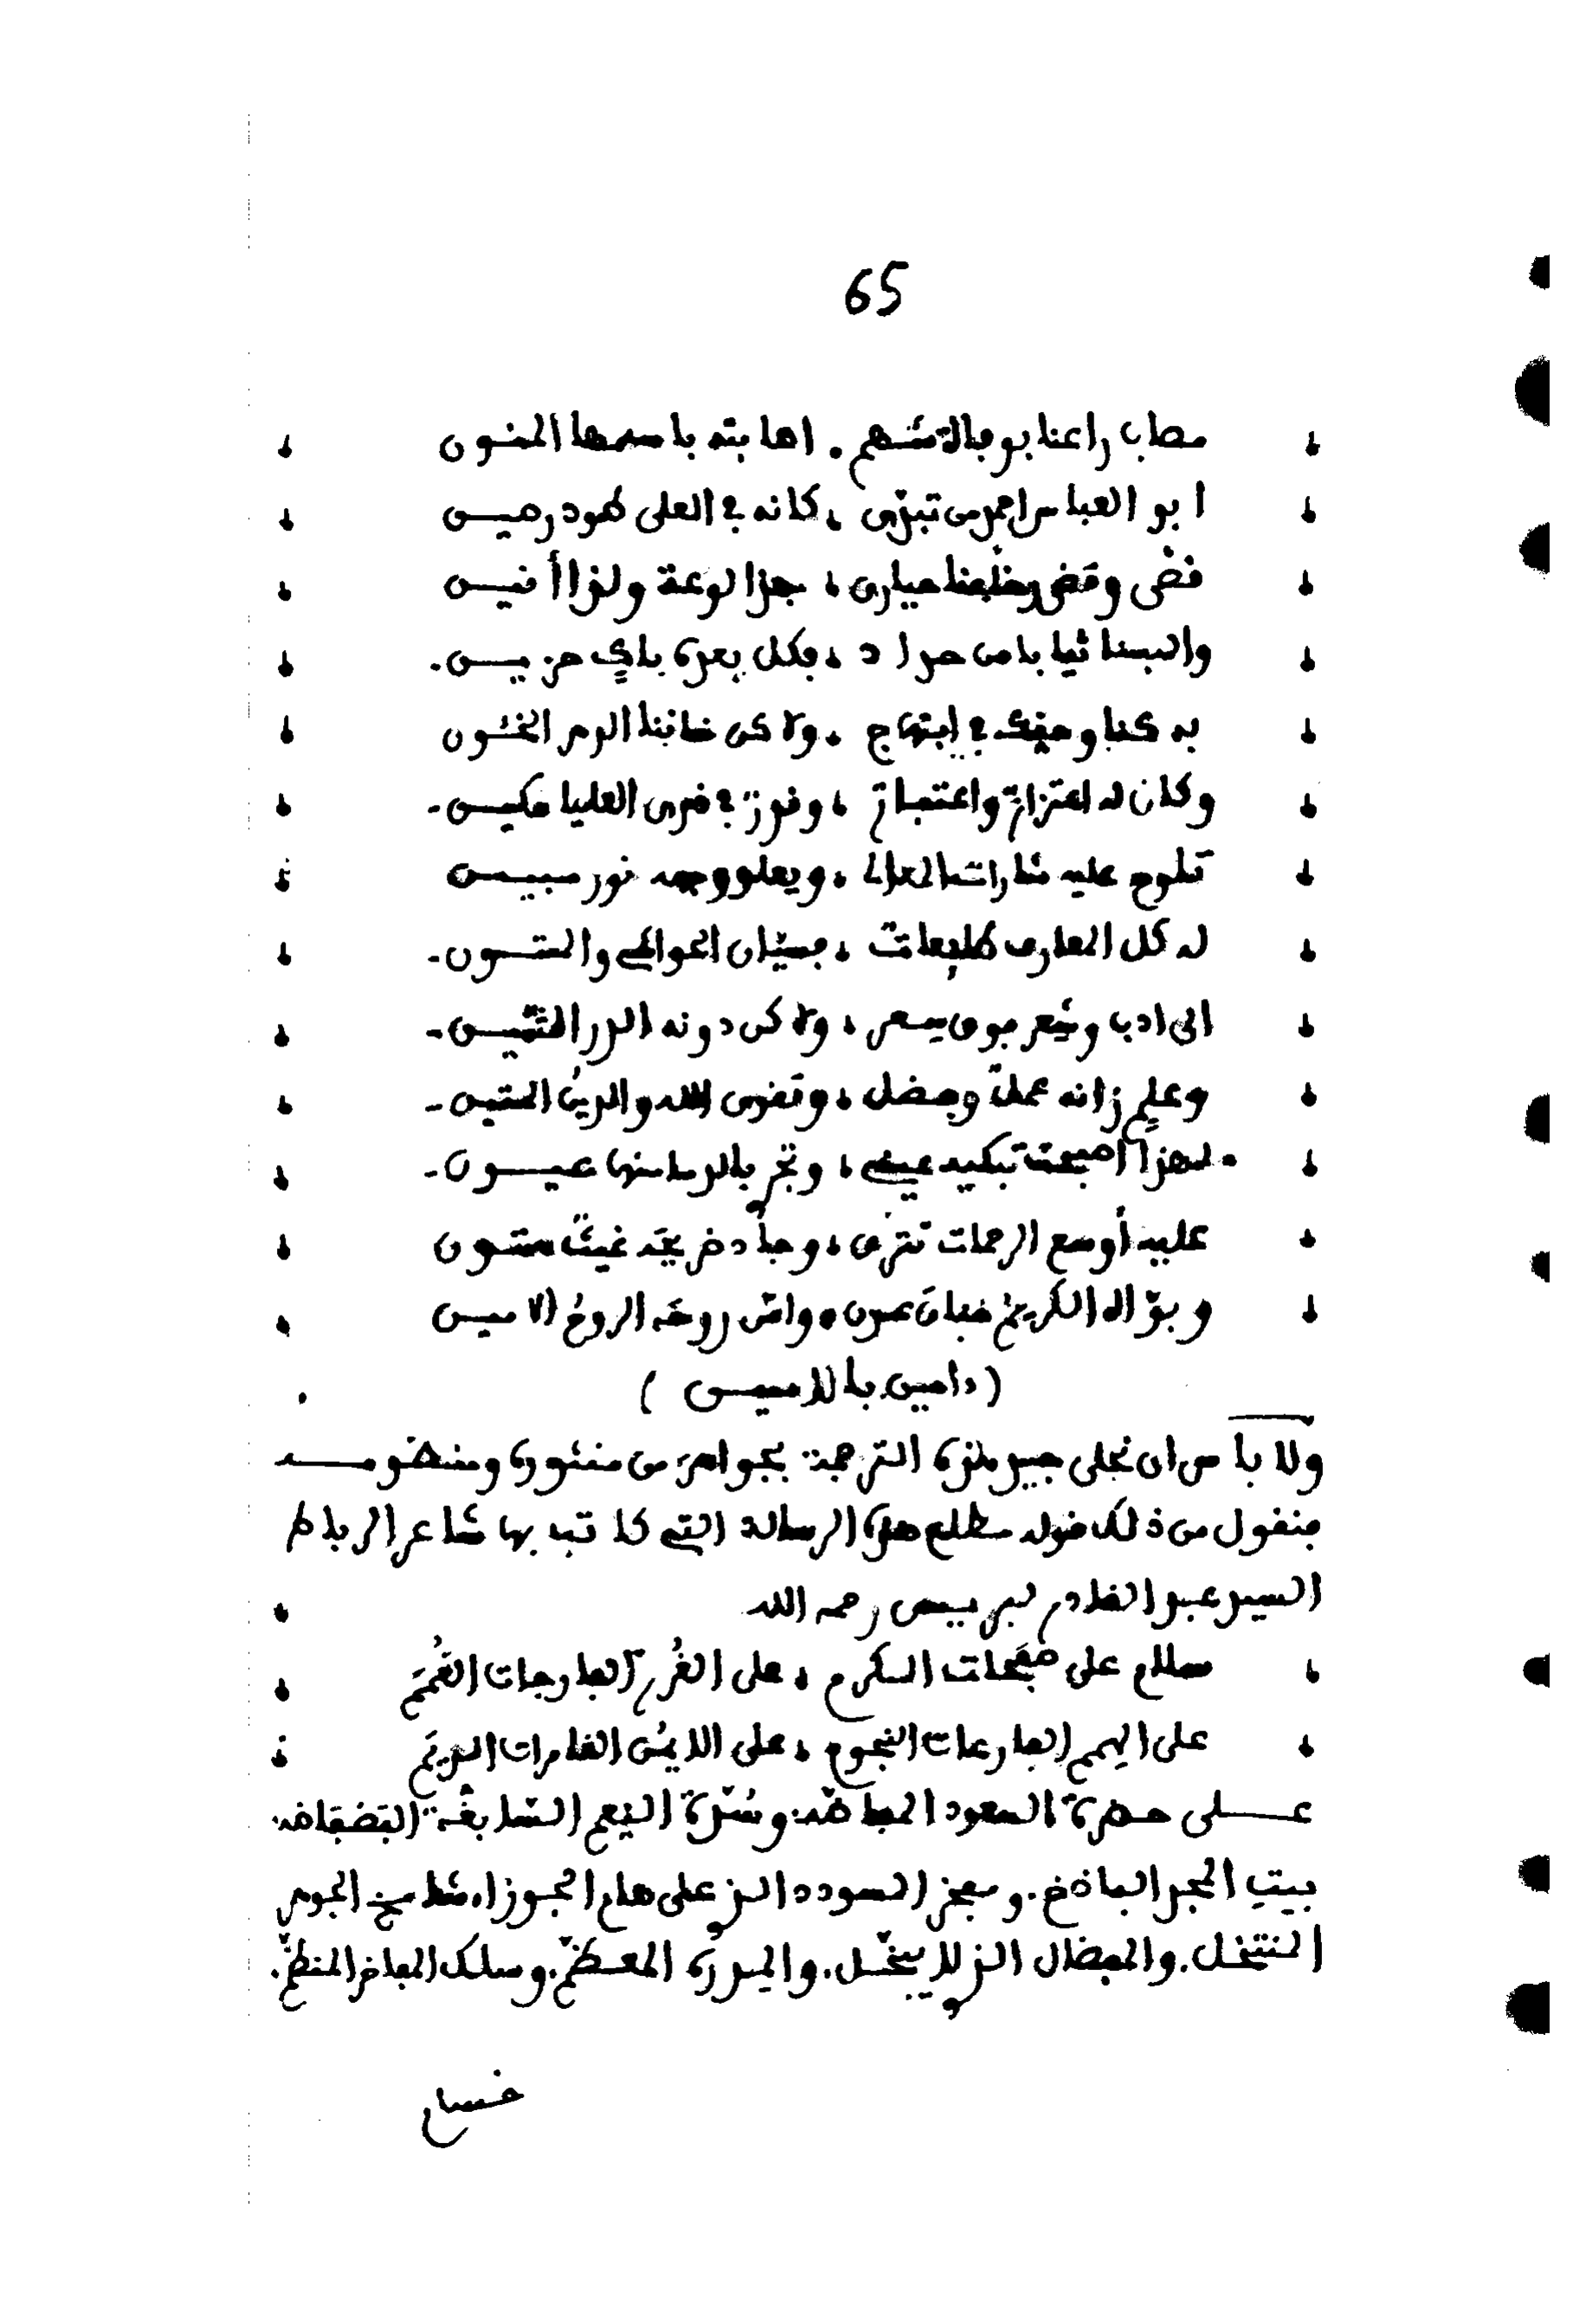 65
مصاب راعنا بوفاة شهم . اصابته باسهمها المنون
ابو العباس احمد من تبدى ، كانه في العلى طود رصين
قضى وقضى فخلفنا حيارى ، بهذا لوعة ولذا أنين
والبسنا ثيابا من حداد ، فكل بعده باكٍ حزين
به كنا وحقك في ابتهاج ، ولاكن خاننا الدهر الخئون
وكان له اعتزاز واعتبار ، وفوز في ذرى العليا مكين
تلوح عليه شارات المعالي ، ويعلو وجهه نور مبين
له كل المعارف طايعات ، فسيان الحواشي والمتون
الى ادب وشعر فوق سحر ، ولاكن دونه الدر الثمين
وعلمٍ زانه عملٌ وفضل ، وتقوى الله والدينُ المتين
لهذا اصبحت تبكيه عيني ، وتجري بالدما منها عيون
عليه أوسع الرحمات تترى ، وجاد ضريحَه غيثٌ هتون
وبوّاه الكريمُ جنانَ عدن ، وامّن روحَه الروحُ الامين
(ءامين بالامين)
ولا باس ان نحلى جيد هذه الترجمة بجواهر من منثوره ومنظومه
فنقول من ذلك قوله مطلع هذه الرسالة التي كاتب بها شاعر الرباط
السيد عبد القادر لبريس رحمه الله
سلام على صفحات الكرم ، على الغُرر الفارجات الغُمَم
على الهمم الفارعات النجوم ، على الايمُن الغامرات الديَم
على حضرة السعود المفاضة وسُدّة النعم السابغة الفضفاضة
بيتِ المجد الباذخ . ومعجز السودد الذي على هام الجوزاء شامخ الجوهر
المنتخل . والمفضال الذي لا يبخل . والدرة المعظمّ . وسلك المفاخر المنظمّ .